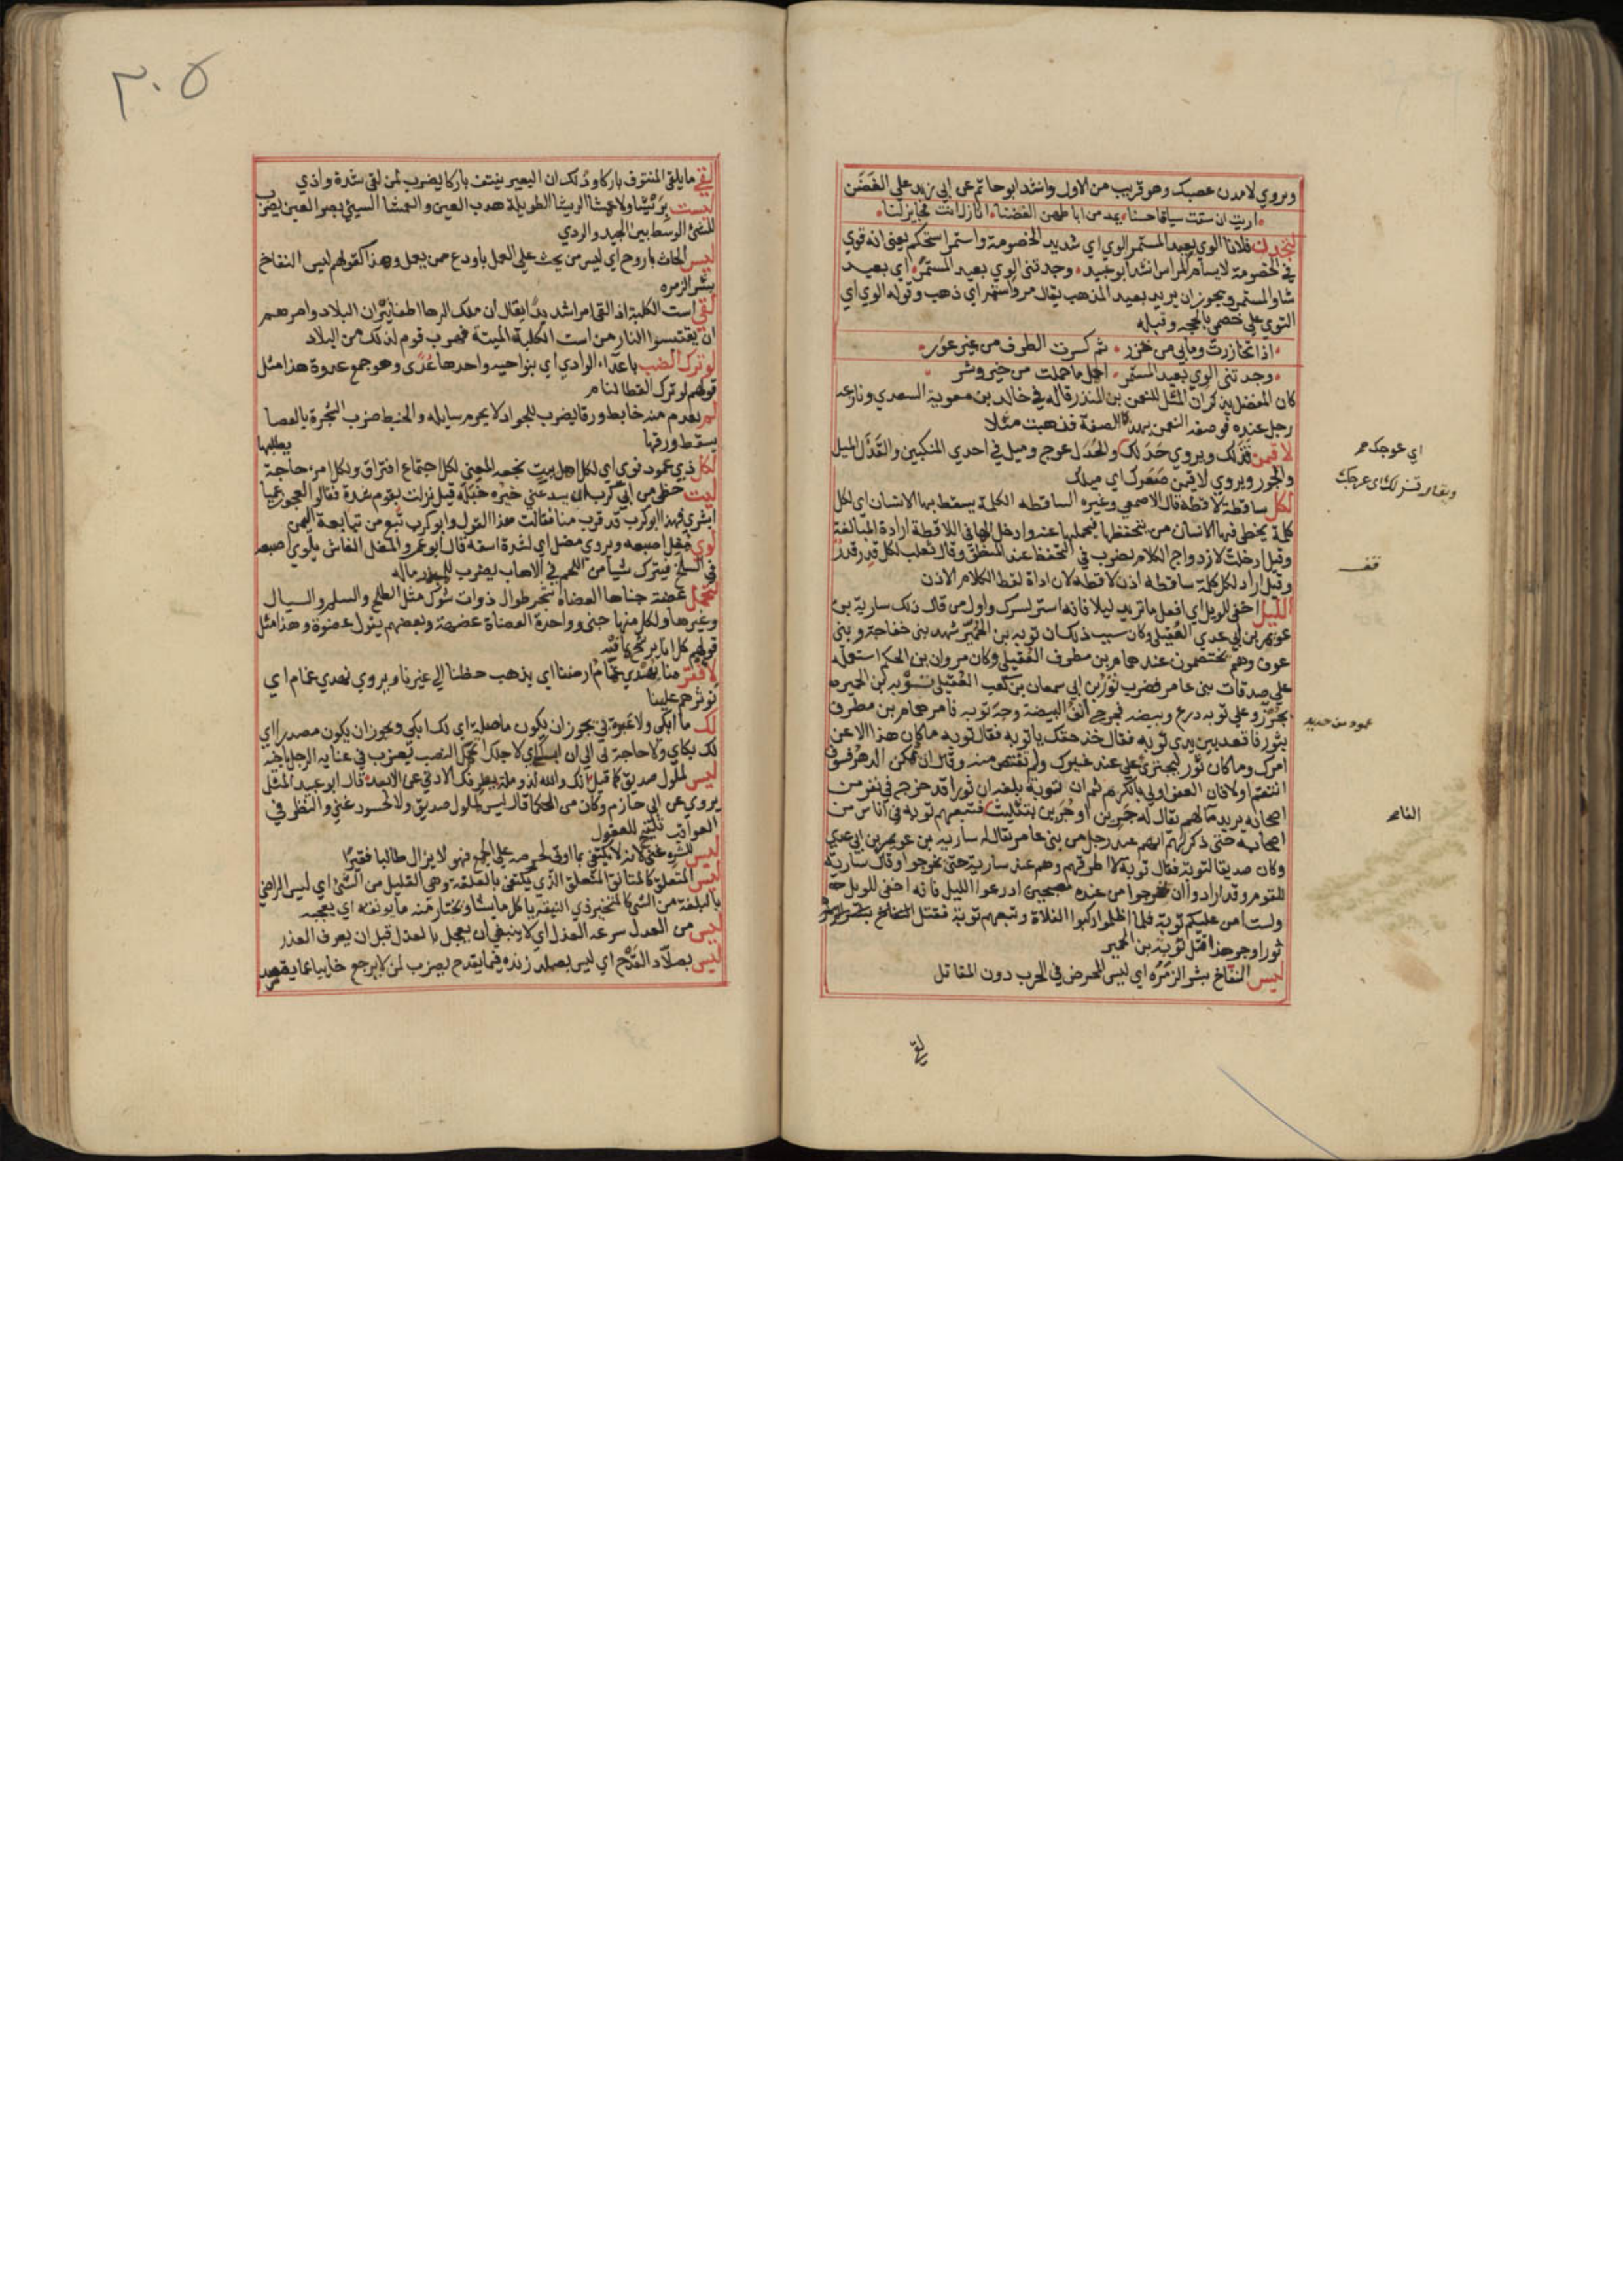 ويروي لامدن عصبك وهو قريب من الاول وانشد ابو حاتم عن ابي زيد علي الغضن
اريت ان سقت سياقا حسنا يمد من اباطهن الغضنا انازل انت فخابز لنا
لتجدن فلانا الوي بعيد المستمر الوي اي شديد الخصومة واستمر استحكم يعني انه قوي
في الخصومة لا يسأم المراس انشد ابو عبيد وجدتني الوي بعيد المستمر اي بعيد
شاو المستمر ويجوز ان يريد بعيد المذهب يقال مر واستمر اي ذهب وقوله الوي اي
التوي علي خصمي بالحجه وقبله
اذا تخازرت وما بي من خزر ثم كسرت الطرف من غير عور
وجدتني الوي بعيد المستمر احمل ما حملت من خير وشر
كان المفضل يذكر ان المثل للنعمن بن المنذر قاله في خالد بن معوية السعدي ونازعه
رجل عنده فوصفه النعمن بهذه الصفة فذهبت مثلا
لاقيمن قذلك ويروي حدلك والحدل عوج وميل في احدي المنكبين والقذل الميل
والجور ويروي لاقيمن صعرك اي ميلك
لكل ساقطة لاقطة قال الاصمعي وغيره الساقطه الكلمة يسقط بها الانسان اي لكل
كلمة يخطي فيها الانسان من يتحفظها فيحملها عنه وادخل الها في اللاقطة ارادة المبالغة
وقيل ادخلت لازدواج الكلام يضرب في التحفظ عند النطق وقال ثعلب لكل قدر قدر
وقيل اراد لكل كلمة ساقطه اذن لاقطه لان اداة لقط الكلام الاذن
الليل اخفي للويل اي افعل ما تريد ليلا فانه استر لسرك واول من قال ذلك سارية بن
عويمر بن ابي عدي العقيلي وكان سبب ذلك ان توبه بن الحمير شهد بني خفاجة وبني
عوف وهم يختصمون عند همام بن مطرف العقيلي وكان مروان بن الحكم استعمله
علي صدقات بني عامر فضرب ثور بن ابي سمعان بن كعب العقيلي توبه بن الحمير
بجرز وعلي توبه درع وبيضه فجرح انف البيضة وجه توبه فامر همام بن مطرف
بثور فاقعد بين يدي توبه فقال خذ حقك يا توبه فقال توبه ما كان هذا الا عن
امرك وما كان ثور ليجتري علي عند غيرك ولم يقتص منه وقال ان يمكن الدهر فسوف
انتقم او لا فان العفو اولي بالكرم ثم ان توبة بلغه ان ثورا قد خرج في نفر من
اصحابه يريد ما لهم يقال له جرير او جرين بتثليث فتبعهم توبه في اناس من
اصحابه حتي ذكر لهم انهم عند رجل من بني عامر يقال له سارية بن عويمر بن ابي عدي
وكان صديقا لتوبة فقال توبة لا اطرقهم وهم عند سارية حتي يخرجوا وقال سارية
للقوم وقد ارادوا ان يخرجوا من عنده مصبحين ادرعوا الليل فانه اخفي للويل
ولست امن عليكم توبة فلما اظلموا ركبوا الفلاة وتبعهم توبة فقتل
ثورا وجر هذا قتل توبة بن الحمير
ليس النفاخ بشر الزمره اي ليس المحرض في الحرب دون المقاتل
لقي
اي عوجك
ويقال
قف
عمود من حديد
٣٠٥
لقي ما يلقي المنتوف باركا وذلك ان البعير ينتف باركا يضرب لمن لقي شدة واذي
ليست بريشا ولا عمشا الريشا الطويلة هدب العين والعمشا السيئ بصر العين يضرب
للشئ الوسط بين الجيد والردي
ليس الحاث باروح اي ليس من يحث علي العمل باودع ممن يعمل وهذا كقولهم ليس النفاخ
بشر الزمره
لقي است الكلبة اذا لقي امرا شديدا يقال ان ملك الرها اطفا نيران البلاد وامرهم
ان يقتبسوا النار من است الكلبة الميتة فهرب قوم لذلك من البلاد
لو ترك الضب باعداء الوادي اي بنواحيه واحدها عدي وهو جمع عدوة هذا مثل
قولهم لو ترك القطا لنام
لم يعدم منه خابط ورقا يضرب للجواد لا يحرم سايله والخبط ضرب الشجرة بالعصا
يسقط ورقها
لكل ذي عمود نوي اي لكل اهل بيت نجعه المعني لكل اجتماع افتراق ولكل امرء حاجة
ليت حظي من ابي كرب ان يسد عني خيره خبله قيل نزلت بقوم شدة فقالوا لعجوز عميا
ابشري فهذا ابو كرب قد قرب منا فقالت هذا القول وابو كرب تبع من تبابعة اليمن
لوي مغل اصبعه ويروي مضل اي لشدة اسفه قال ابو عمرو المغل الغاش يلوي اصبعه
في السلخ فيترك شيا من اللحم في الاهاب يضرب للمبذر ماله
لتحمل عضة جناها العضاه شجر طوال ذوات شوك مثل الطلح والسلم والسيال
وغيرها ولكل منها جني وواحدة العضاة عضهة وبعضهم يقول عضوة وهذا مثل
قولهم كل انا يرشح بما فيه
منا يهتدي غمام ارضنا اي يذهب حظنا الي غيرنا ويروي تهدي غمام اي
تؤثرهم علينا
لك ما ابكي ولا عبرة بي يجوز ان يكون ما صلة اي لك ابكي ويجوز ان يكون مصدرا اي
لك بكاي ولا حاجة لي الي ان ابكي لاجلك محل النصب يضرب في عناية الرجل باخيه
ليس لملول صديق كما قيل انك والله لذو ملة يطرفك الادني عن الابعد قال ابو عبيد المثل
يروي عن ابي حازم وكان من الحكما قال ليس لملول صديق ولا لحسود غني والنظر في
العواقب تلقيح للعقول
ليس للشره غني لانه لا يكتفي بما اوتي لحرصه علي الجمع فهو لا يزال طالبا فقيرا
ليس المتعلق كالمتانق المتعلق الذي يكتفي بالعلقة وهي القليل من الشئ اي ليس الراضي
بالبلغة من الشئ كالمتخير ذي النيقة ياكل ما يشا ويختار منه ما يونقه اي يعجبه
ليس من العدل سرعه العذل اي لا ينبغي ان يعجل بالعذل قبل ان يعرف العذر
ليس بصلاد القدح اي ليس يصلد زنده فيما يقدح يضرب لمن لا يرجع خايبا عما يقصد